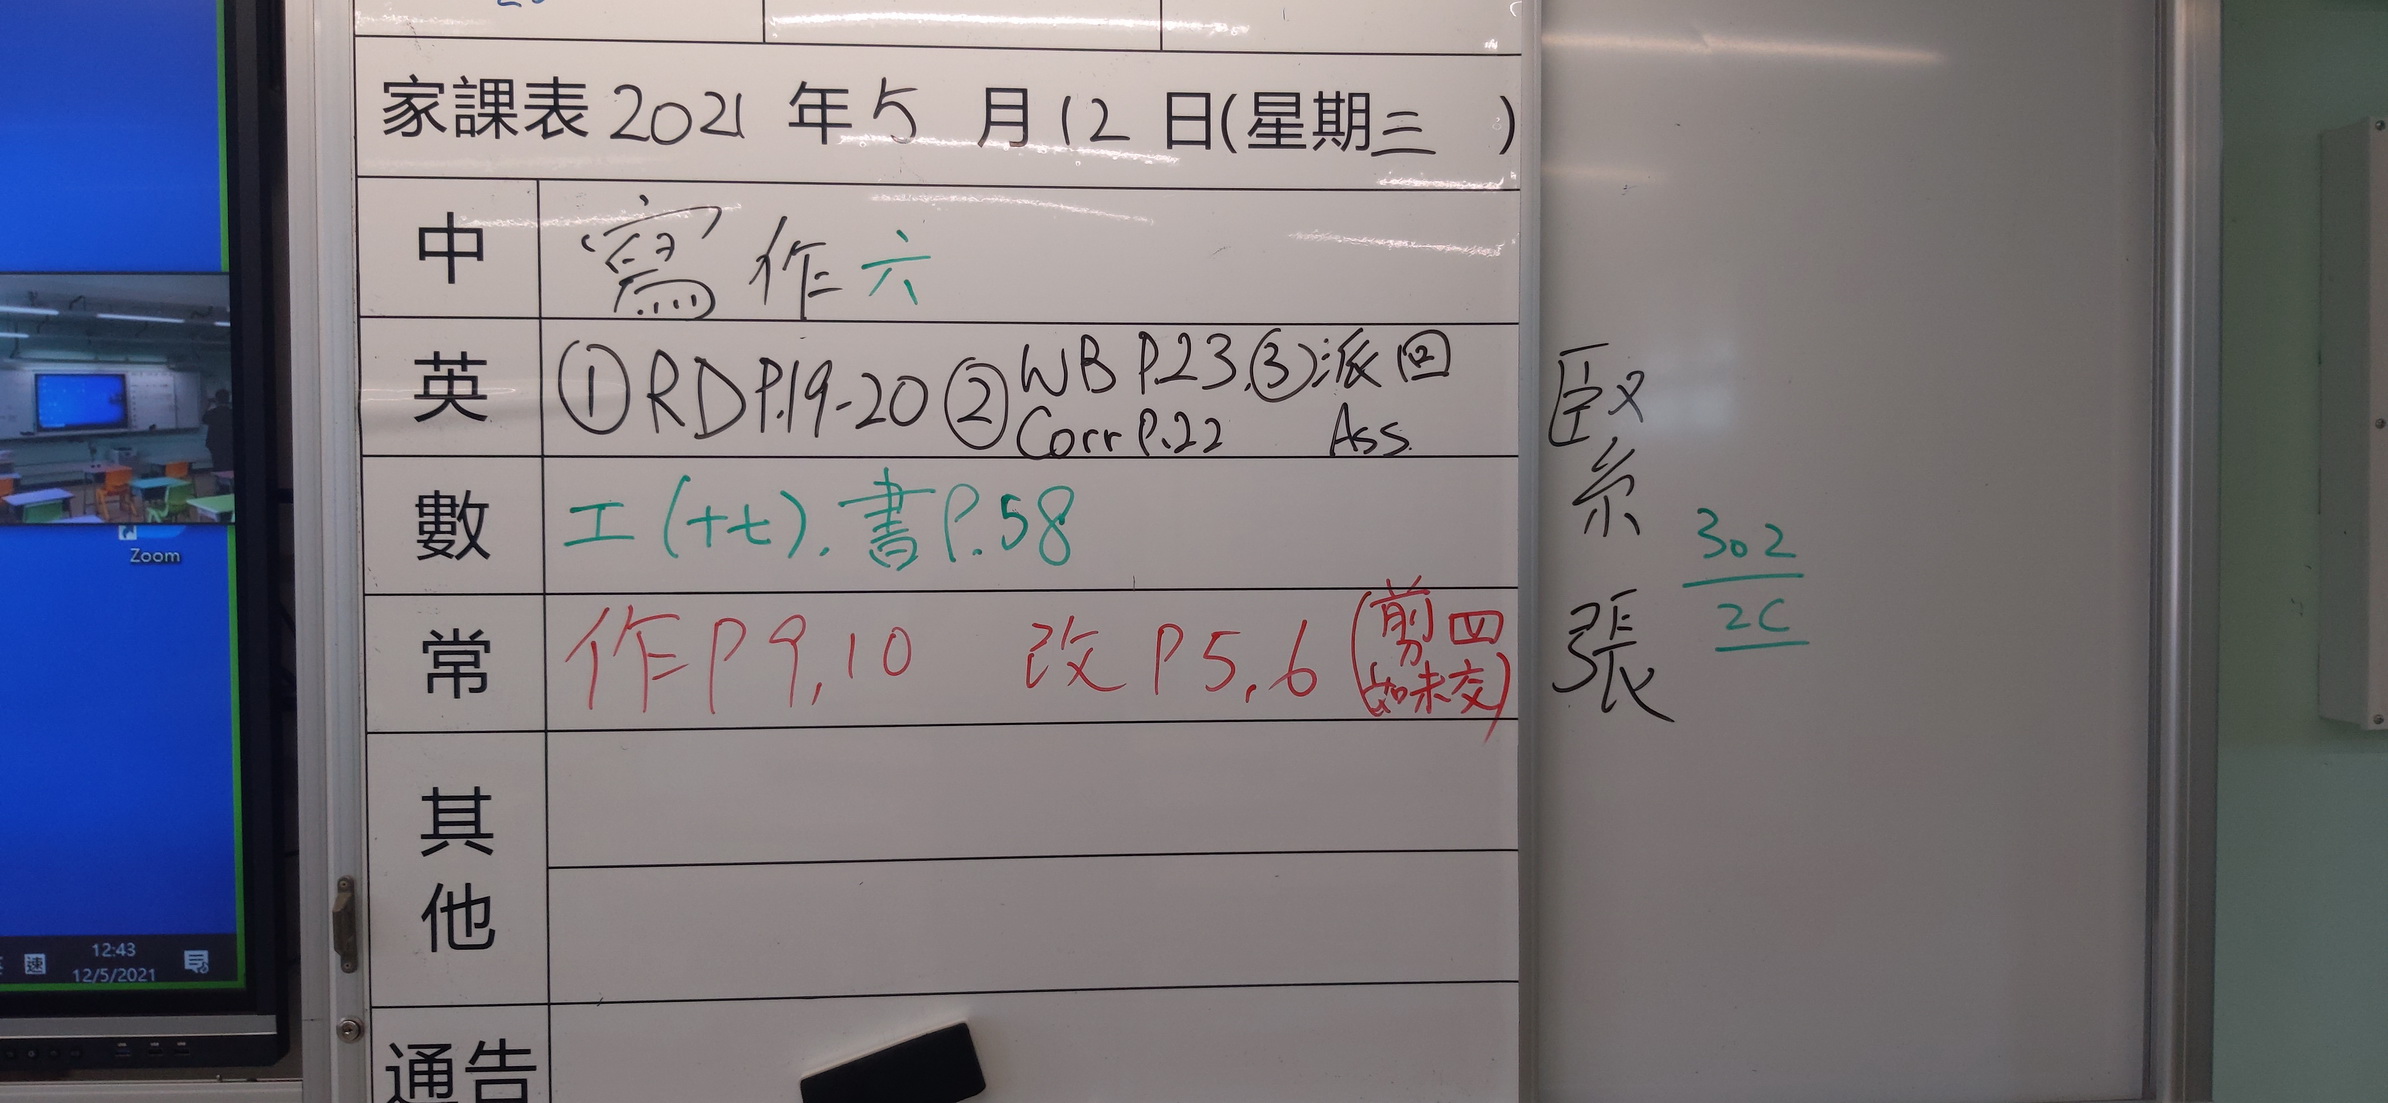 家課表 2021 年 5 月 12 日(星期三 )
中 寫作六
英 ①RD P.19-20 ②WB P.23 ③派回
Corr P.22 Ass.
數 工(十七).書P.58
常 作P9,10 改P5,6(剪四
如未交)
其他
通告
緊
張
302
2C
Zoom
速
12:43
12/5/2021